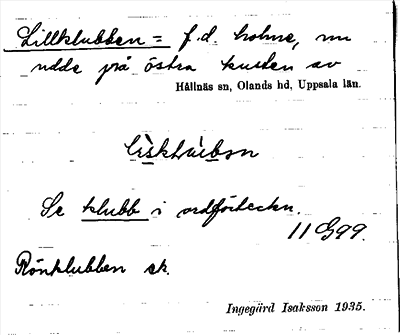 Lillklubben = f.d. holme, nu
udde på östra kusten av
Hållnäs sn, Olands hd, Uppsala län.
Se klubb i ordförteckn.
11 G 99.
Rönklubben sk.
Ingegärd Isaksson 1935.